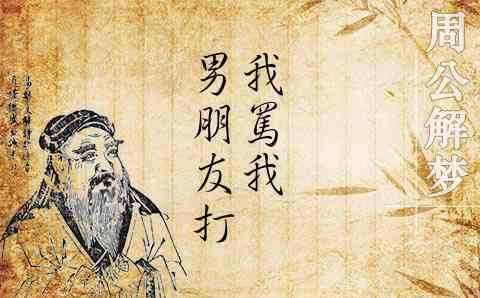 周公解梦
我骂我
男朋友打